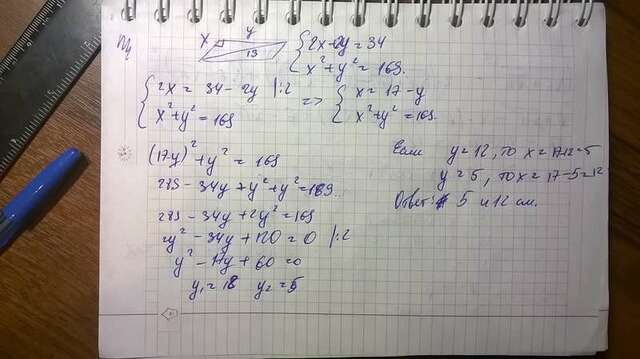 №4
x y 13
2x+2y=34
x²+y²=169.
2x = 34-2y |:2
x²+y² = 169
=>
x = 17-y
x²+y² = 169.
(17-y)² + y² = 169
289 - 34y + y² + y² = 169..
289 - 34y + 2y² = 169
2y² - 34y + 120 = 0 |:2
y² - 17y + 60 = 0
y₁ = 12 y₂ = 5
Если y = 12, то x = 17-12=5
y = 5, то x = 17-5=12
Ответ: 5 и 12 см.